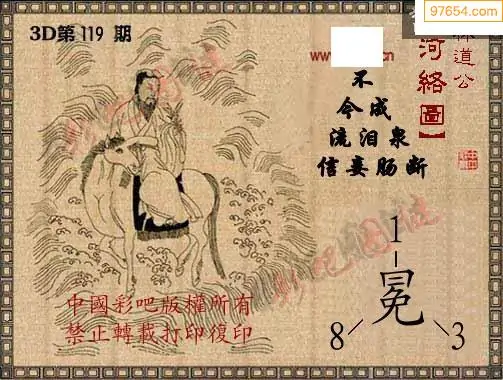 97654.com
3D第 119 期
www.
林道公
河絡圖】
不
今成
流泪泉
信妾肠断
彩吧圖波
1
冕
8 3
中國彩吧版權所有
禁止轉載打印復印